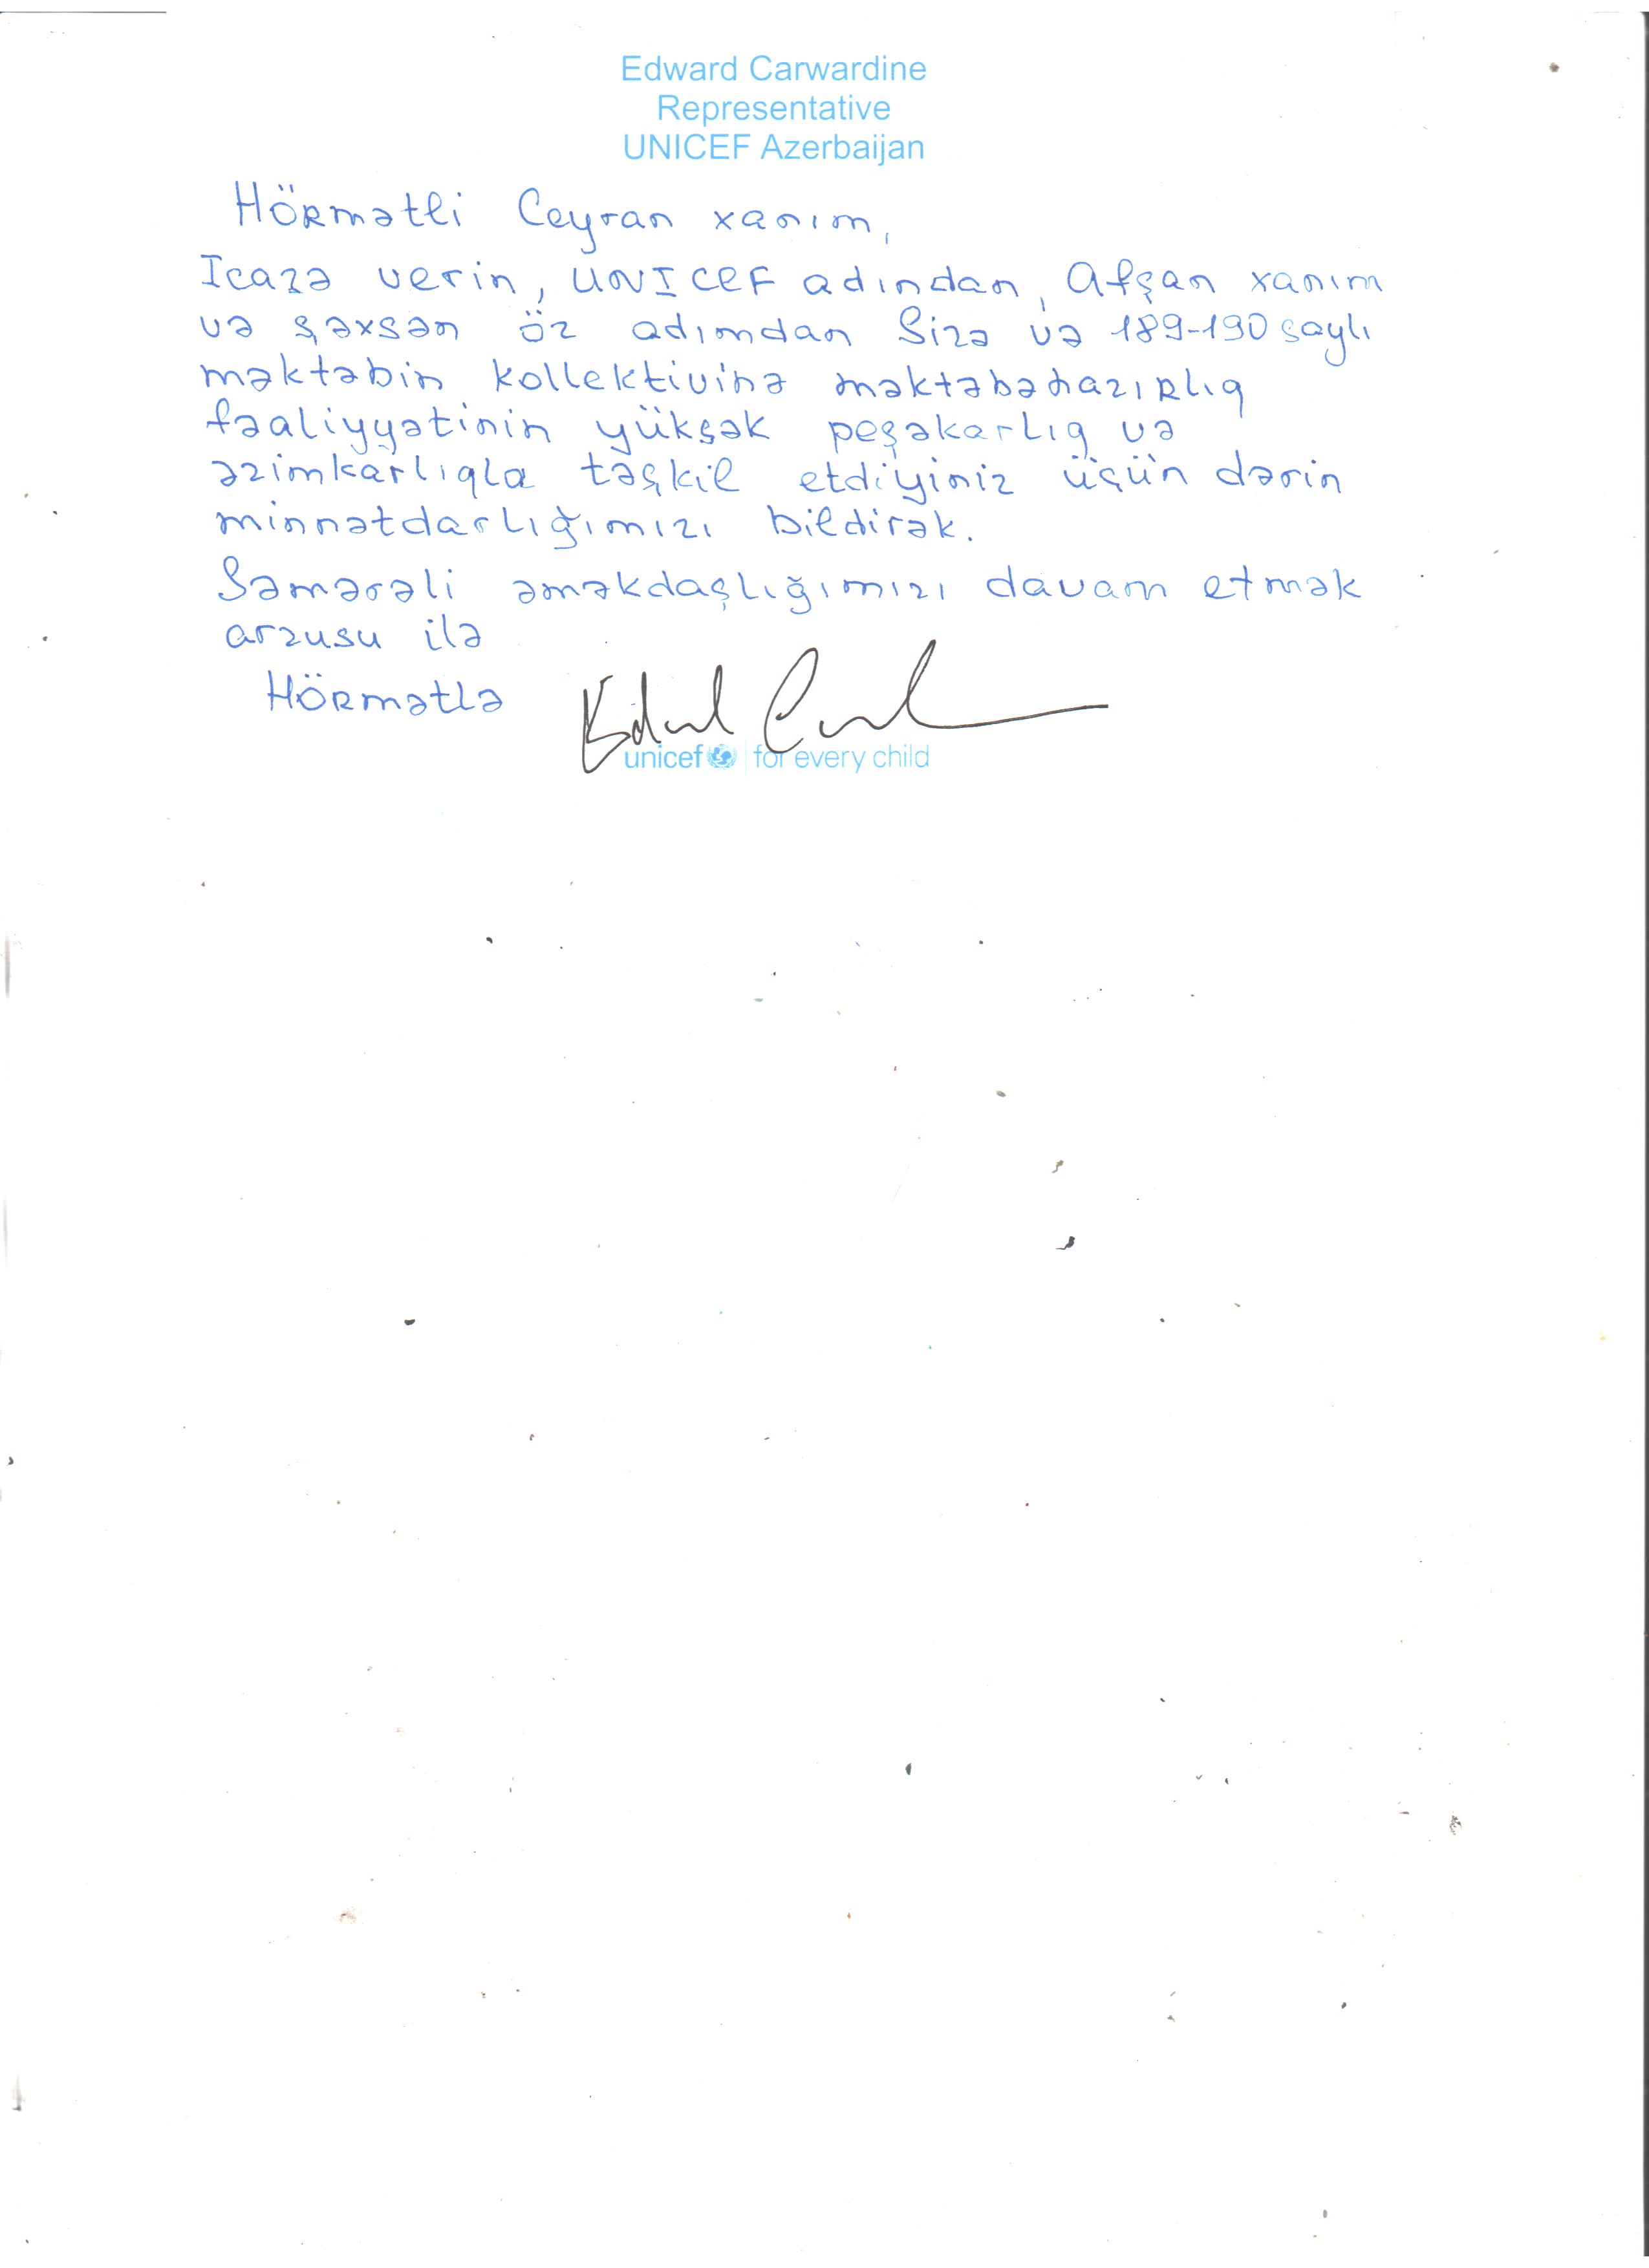 Edward Carwardine
Representative
UNICEF Azerbaijan
Hörmətli Ceyran xanım,
Icazə verin, UNICEF adından, Afşan xanım
və şəxsən öz adımdan Sizə və 189-190 saylı
məktəbin kollektivinə məktəbəhazırlıq
fəaliyyətinin yüksək peşəkarlıq və
əzimkarlıqla təşkil etdiyiniz üçün dərin
minnətdarlığımızı bildirək.
Səmərəli əməkdaşlığımızı davam etmək
arzusu ilə
Hörmətlə
unicef for every child